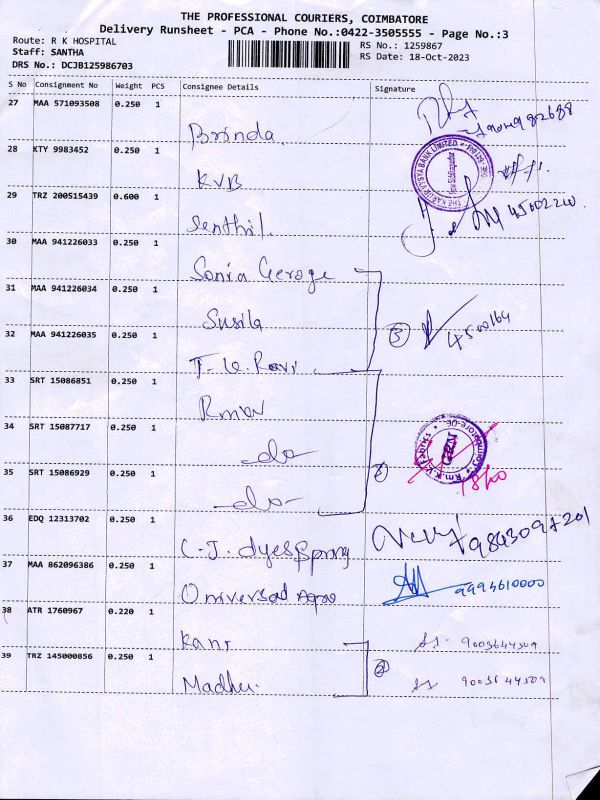 THE PROFESSIONAL COURIERS, COIMBATORE
Delivery Runsheet - PCA - Phone No.:0422-3505555 - Page No.:3
Route: R K HOSPITAL
Staff: SANTHA
DRS No.: DCJB125986703
RS No.: 1259867
RS Date: 18-Oct-2023
S No Consignment No Weight PCS Consignee Details Signature
27 MAA 571093508 0.250 1
Brinda
28 KTY 9983452 0.250 1
KVB
29 TRZ 200515439 0.600 1
Senthil.
45002210
30 MAA 941226033 0.250 1
Sonia Geroge
31 MAA 941226034 0.250 1
Susila
3
4500164
32 MAA 941226035 0.250 1
T. V. Ravi
33 SRT 15086851 0.250 1
RMKV
34 SRT 15087717 0.250 1
-do-
35 SRT 15086929 0.250 1
-do-
36 EDQ 12313702 0.250 1
C.J. dyes
9843097201
37 MAA 862096386 0.250 1
Universal Agro
9993610000
38 ATR 1760967 0.220 1
Kani
9003644509
39 TRZ 145000856 0.250 1
Madhu.
2
9003644509